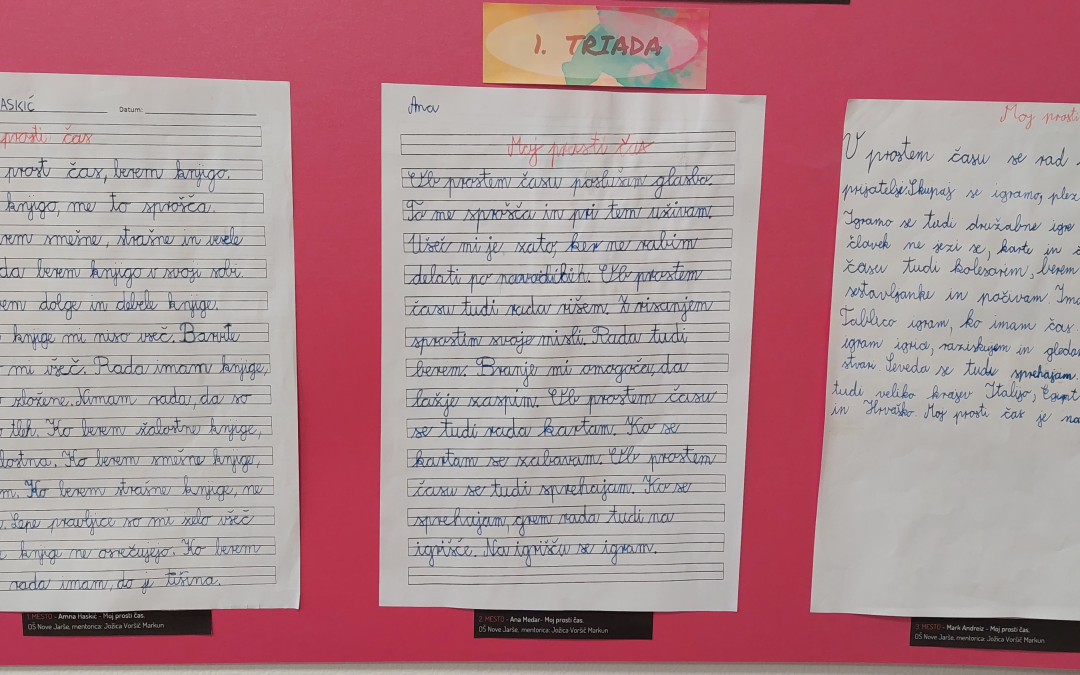 1. TRIADA
ASKIĆ
Datum:
prosti čas
prost čas, berem knjigo.
knjigo, me to sprošča.
smešne, strašne in vesele
da berem knjigo v svoji sobi.
dolge in debele knjige.
knjige mi niso všeč. Barvite
mi všeč. Rada imam knjige,
zložene. Nimam rada, da so
tleh. Ko berem žalostne knjige,
Ko berem smešne knjige,
Ko berem strašne knjige, ne
Lepe pravljice so mi zelo všeč
knjige ne osrečujejo. Ko berem
rada imam, da je tišina.
1. MESTO - Amna Haskić - Moj prosti čas.
OŠ Nove Jarše, mentorica: Jožica Voršič Markun
Ana
Moj prosti čas
V prostem času poslušam glasbo.
To me sprošča in pri tem uživam.
Všeč mi je zato, ker ne rabim
delati po navodilih. V prostem
času tudi rada rišem. Z risanjem
sprostim svoje misli. Rada tudi
berem. Branje mi omogoča, da
lažje zaspim. V prostem času
se tudi rada kartam. Ko se
kartam se zabavam. V prostem
času se tudi sprehajam. Ko se
sprehajam, grem rada tudi na
igrišče. Na igrišču se igram.
2. MESTO - Ana Medar - Moj prosti čas.
OŠ Nove Jarše, mentorica: Jožica Voršič Markun
Moj prosti
V prostem času se rad
prijatelji. Skupaj se igramo, plez
Igramo se tudi družabne igre
človek ne jezi se, karte in
času tudi kolesarim, berem
sestavljanke in počivam. Ima
Tablico igram, ko imam čas.
igram igrice, raziskujem in gledam
stvari. Seveda se tudi sprehajam.
tudi veliko krajev Italijo, Egipt
in Hrvaško Moj prosti čas je na
3. MESTO - Mark Andreiz - Moj prosti čas.
OŠ Nove Jarše, mentorica: Jožica Voršič Markun